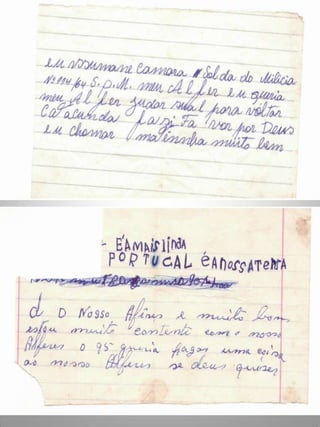 eu ussumane Camara "Solda do Milicia
Nº 104/64 S.D.M. meu Alfer eu queria
meu Alfer judar sual para voltar
Cat acunda fazi fa vor por Deus
eu chamar matinnha muito bem
- ÉAMAISLiNdA
PORTUGAL ÉANOSSATERRA
d O Nosso, Alferes e muito bom
estou muito contente com o nosso
Alferes o 95 queria pagar uma coisa
ao nosso Alferes se deus quiser